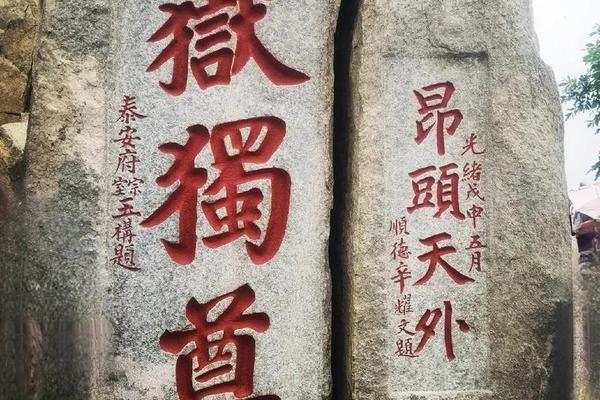 光緒戊申五月
昂頭天外
順德辛耀文題
嶽獨尊
泰安府宗室玉構題